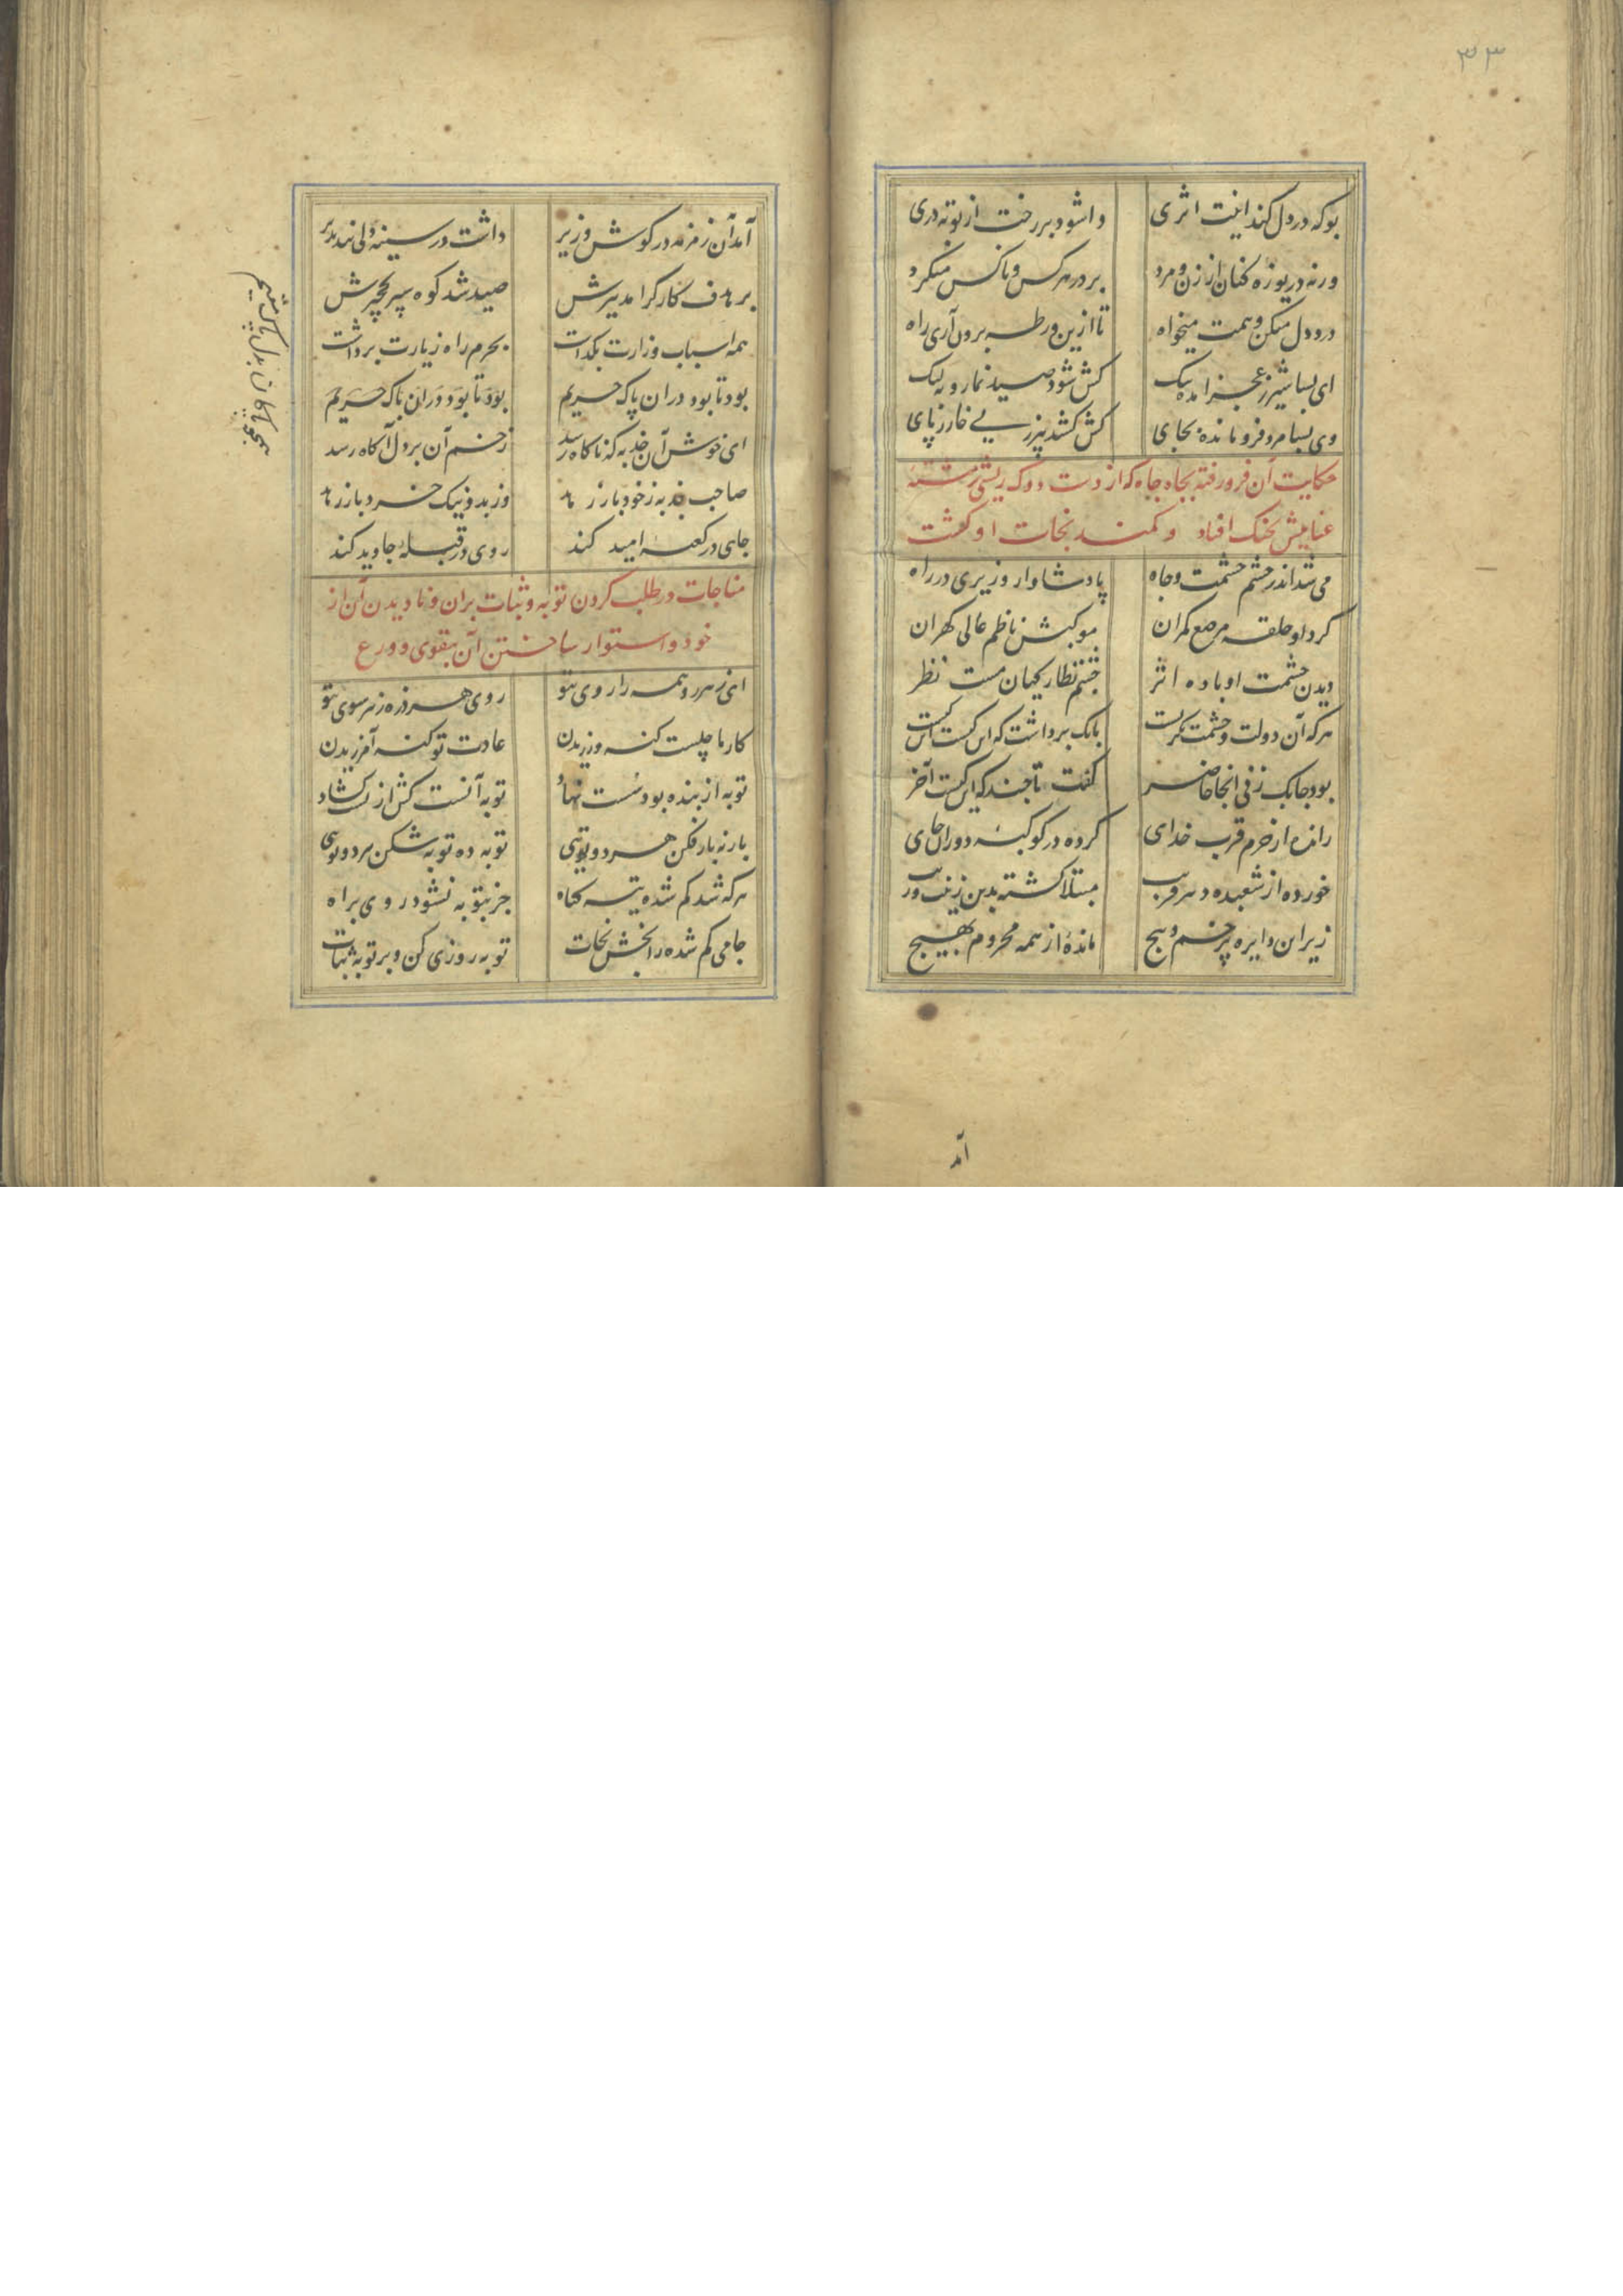 ۳۳
بوکه در دل کند اینت اثری
واشود بر رخت از توبه دری
ورنه دریوزه کنان از زن و مرد
بر در هر کس و ناکس میگرد
درد دل میکن و همت میخواه
تا ازین ورطه برون آری راه
ای بسا شیر ز عجز آمده تک
کش شود صید نما روبه لنک
وی بسا مرد فرو مانده بجای
کش کشد پیرزنی خار ز پای
حکایت آن فرو رفته بچاه جاه که از دست دوک ریشی رشته
عنایتش بچنک افتاد و کمند نجات او کشت
می شد اندر حشم حشمت و جاه
پادشاوار وزیری در راه
کرد او حلقه مرصع کمران
موکبش ناظم عالی کهران
دیدن حشمت او باده اثر
چشم نظارکیان مست نظر
هر که آن دولت و حشمت نکریست
بانک برداشت که این کیست این کیست
بود چابک زنی آنجا حاضر
کفت تا چند که این کیست آخر
رانده از حرم قرب خدای
کرده در کوکبه دوران جای
خورده از شعبده دهر فریب
مبتلا کشته بدین زینت و زیب
زیر این دایره پر خم و پیچ
مانده از همه محروم بهیچ
آمد
آمد آن زمزمه در کوش وزیر
داشت در سینه دلی پند پذیر
بر هدف کارکر آمد تیرش
صید شد کوه سپر نخچیرش
همه اسباب وزارت بکذاشت
بحرم راه زیارت برداشت
بود تا بود در آن پاک حریم
بود تا بود در آن پاک حریم
همچو پاکان بدل پاک مقیم
ای خوش آن جذبه که ناکاه رسد
زخم آن بر دل آکاه رسد
صاحب جذبه ز خود باز رهد
وز بد و نیک خرد باز رهد
جای در کعبه امید کند
روی در قبله جاوید کند
مناجات در طلب کردن توبه و ثبات بران و نادیدن آن از
خود و استوار ساختن آن بتقوی و ورع
ای ز هر رو همه را روی بتو
روی هر ذره ز هر سوی بتو
کار ما چیست کنه ورزیدن
عادت تو کنه آمرزیدن
توبه از بنده بود سست نهاد
توبه آنست کش از تست کشاد
بار نه بار فکن هر دو توئی
توبه ده توبه شکن هر دو توئی
هر که شد کم شده تیه کناه
جز بتو به نشود روی براه
جامی کم شده را بخش نجات
توبه روزی کن و بر توبه ثبات